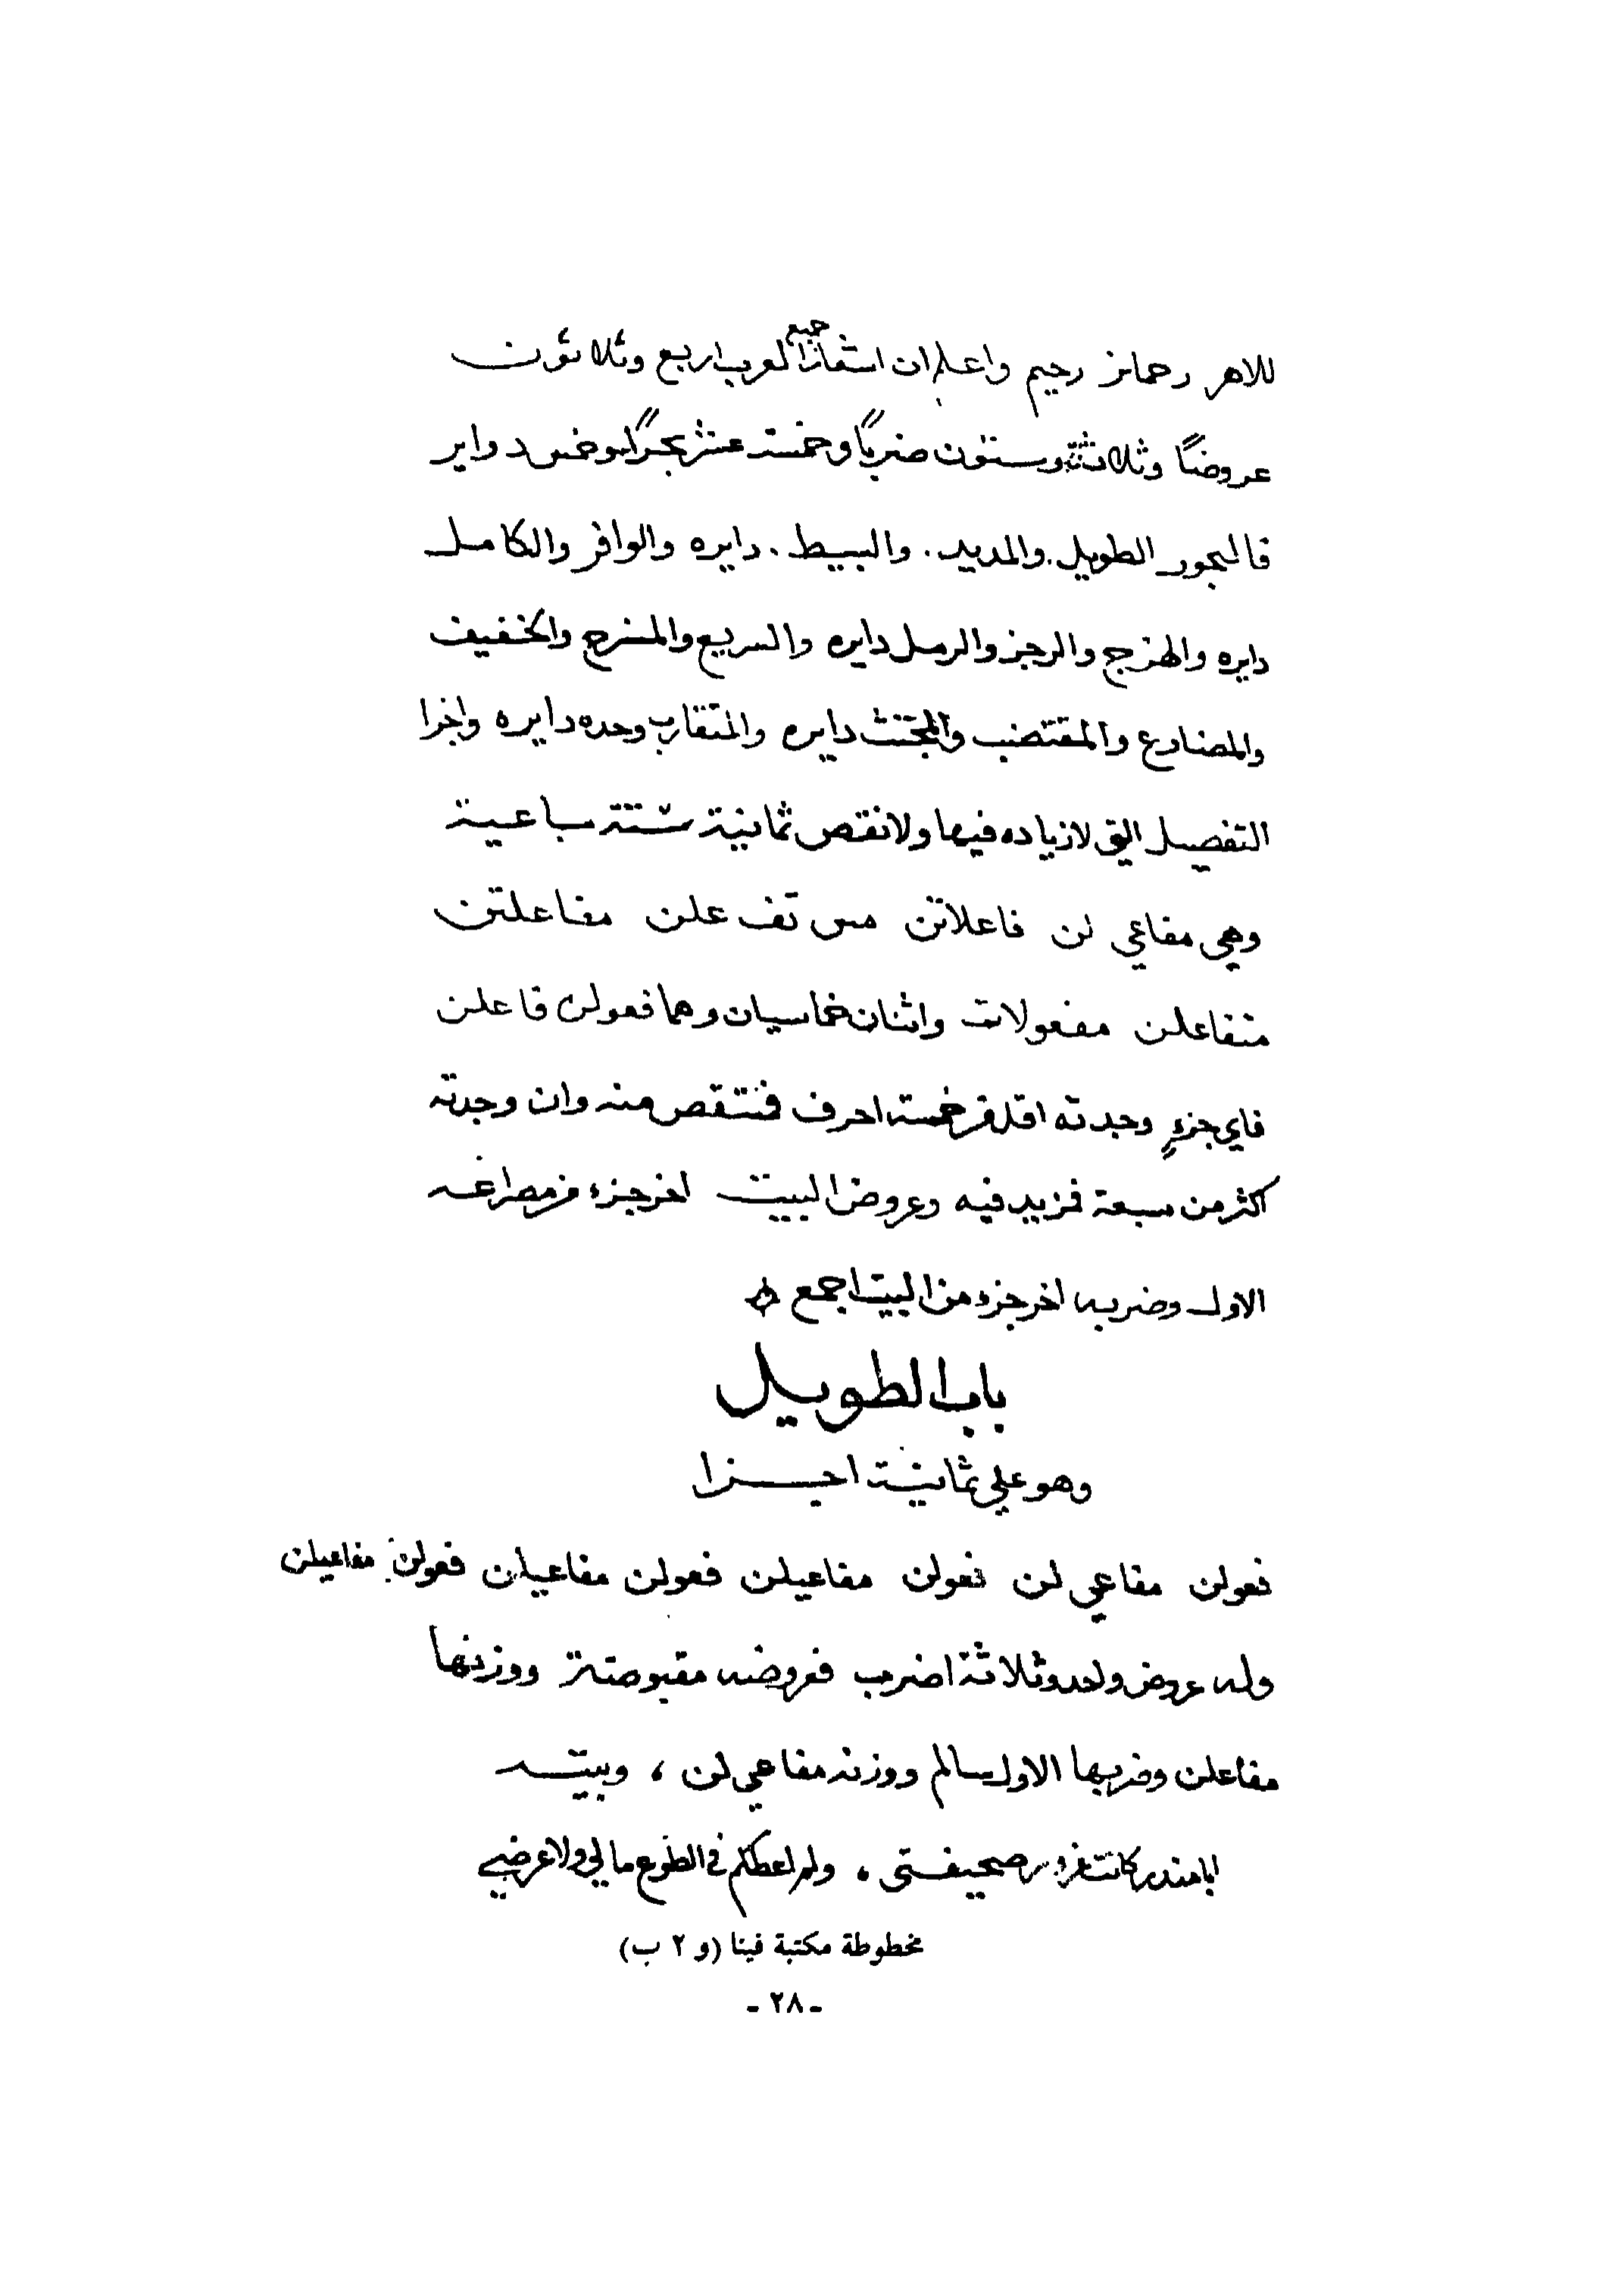 للاهر رحمانر رحيم واعلم ان اشعار جميع العرب اربع وثلاثون
عروضاً وثلاثة وستون ضرباً وخمسة عشر بحراً وخمس دواير
فالبحور الطويل . والمديد . والبسيط . دايره والوافر والكامل
دايره والهزج والرجز والرمل دايره والسريع والمنسرح والخفيف
والمضارع والمقتضب والمجتث دايره والمتقارب وحده دايره واجزا
التفصيل التي لا زياده فيها ولا نقص ثمانية ستة سباعية
وهي مفاعي لن فاعلاتن مس تفعلن مفاعلتن
متفاعلن مفعولات واثنان خماسيان وهما فعولن فاعلن
فاي جزءٍ وجدته اقل من خمسة احرف فنتقص منه وان وجدته
اكثر من سبعة فزيد فيه وعروض البيت اخر جزء من مصراعه
الاول وضربه اخر جزء من البيت اجمع
باب الطويل
وهو على ثمانية اجزا
فعولن مفاعي لن فعولن مفاعيلن فعولن مفاعيلن فعولن مفاعيلن
وله عروض واحد وثلاثة اضرب فعروضه مقبوضة ووزنها
مفاعلن وضربها الاول سالم ووزنه مفاعي لن ، وبيته
ابا منذر كانت غرورا صحيفتي ، ولم اعطكم في الطوع مالي ولا عرضي
مخطوطة مكتبة فينا (و ٢ ب)
- ٢٨ -